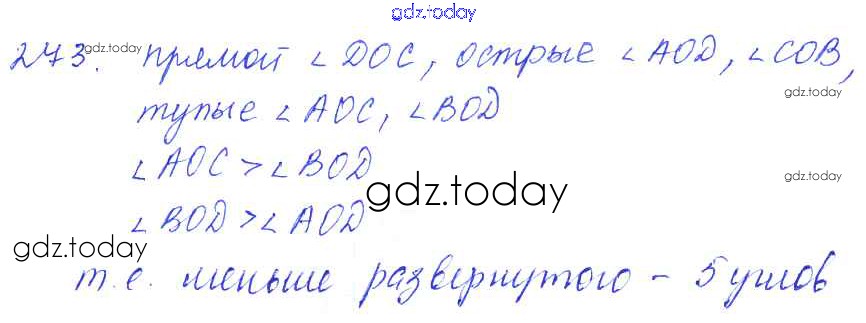 gdz.today
273. прямой ∠DOC, острые ∠AOD, ∠COB,
gdz.today
тупые ∠AOC, ∠BOD
gdz.today
∠AOC > ∠BOD
gdz.today
gdz.today
∠BOD > ∠AOD
gdz.today
т.е. меньше развернутого - 5 углов